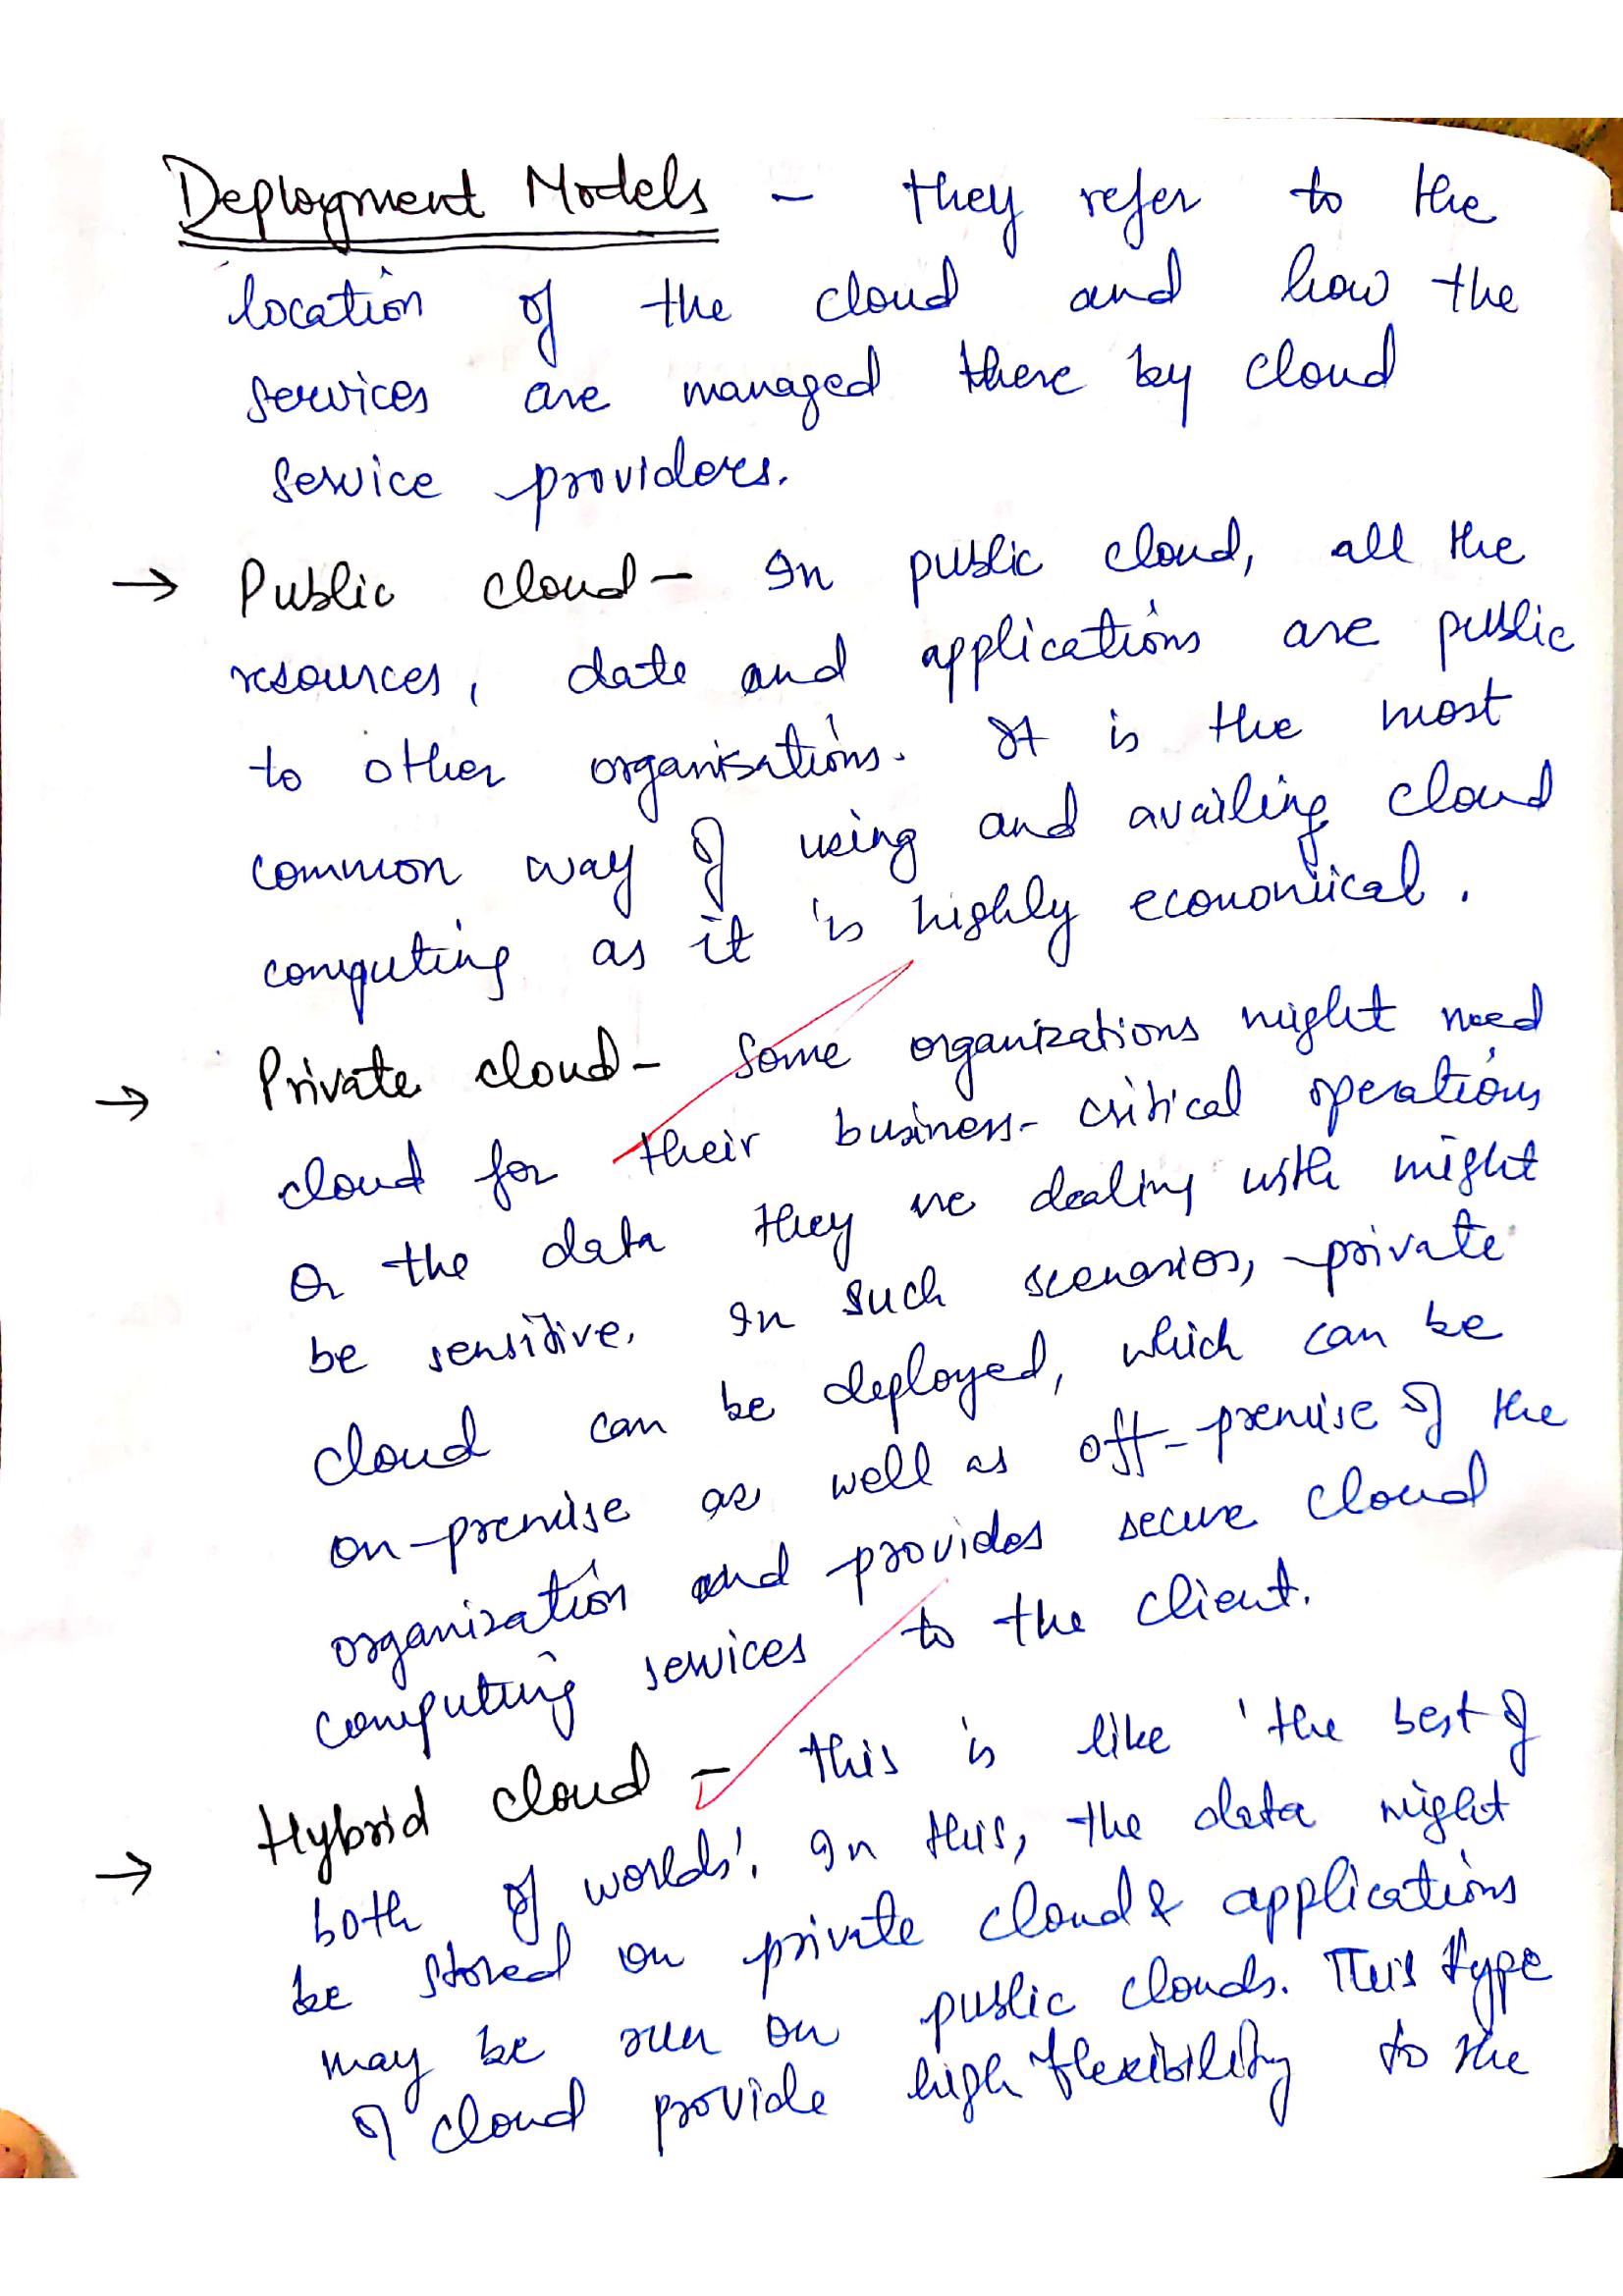 Deployment Models - they refer to the
location of the cloud and how the
services are managed there by cloud
service providers.
→ Public cloud - In public cloud, all the
resources, date and applications are public
to other organisations. It is the most
common way of using and availing cloud
computing as it is highly economical.
→ Private cloud - Some organizations might need
cloud for their business-critical operations
or the data they are dealing with might
be sensitive. In such scenarios, private
cloud can be deployed, which can be
on-premise as well as off-premise of the
organization and provides secure cloud
computing services to the client.
→ Hybrid cloud - this is like 'the best of
both of worlds'. In this, the data might
be stored on private cloud & applications
may be run on public clouds. This type
of cloud provide high flexibility to the